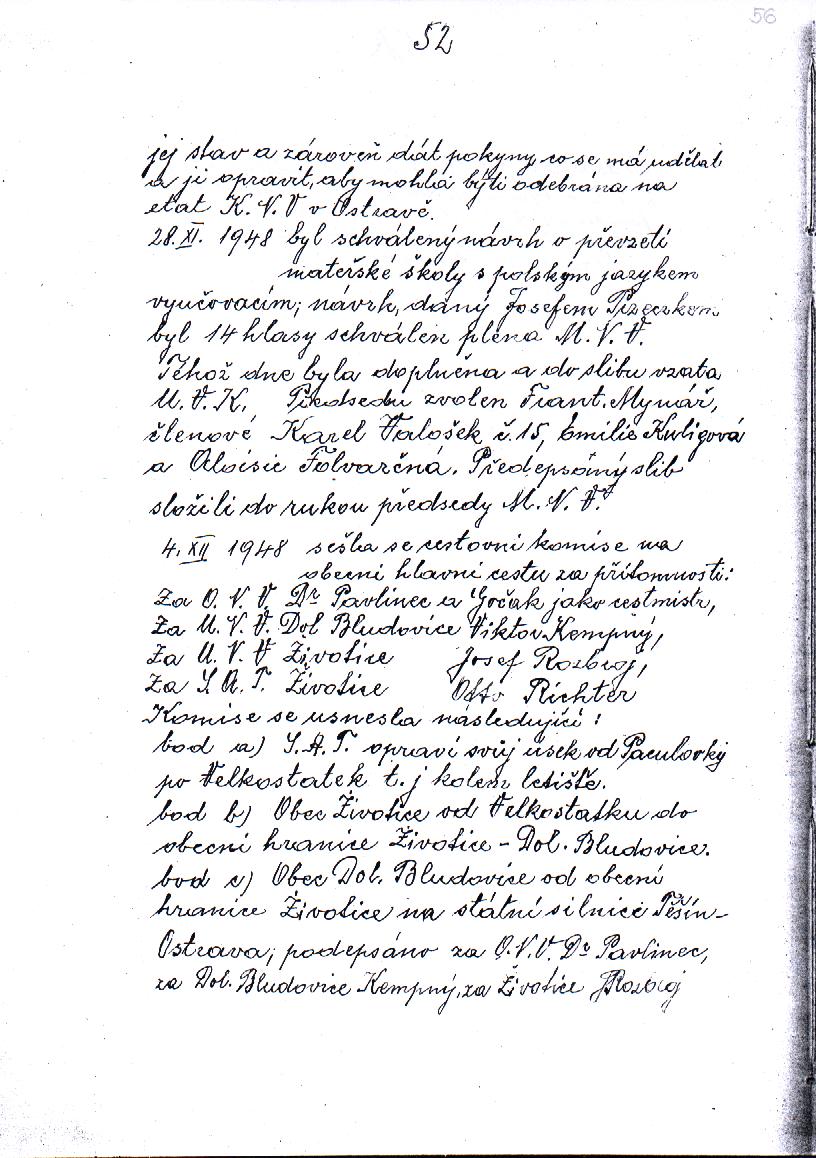 56
52
jej stav a zároveň dát pokyny co se má udělat
a ji opravit, aby mohla býti odebrána na
etat K. N. V v Ostravě.
28. XI. 1948 byl schválený návrh o převzetí
mateřské školy s polským jazykem
vyučovacím; návrh, daný Josefem Pizeczkem
byl 14 hlasy schválen pléna M. N. V.
Téhož dne byla doplněna a do slibu vzata
M. V. K. Předsedou zvolen Frant. Mynář,
členové Karel Valošek č. 15, Emilie Kuligová
a Aloisie Folvarčná. Předepsaný slib
složili do rukou předsedy M. N. V.
4. XII 1948 sešla se cestovní komise na
obecní hlavní cestu za přítomnosti:
Za O. N. V. Dr Pavlinec a Gočak jako cestmistr,
Za M. N. V. Dol Bludovice Viktor Kempný,
Za M. N. V Životice Josef Rozbroj,
Za S. A. T. Životice Otto Richter
Komise se usnesla následující:
bod a) S. A. T. opraví svůj úsek od Paculovky
po Velkostatek t. j kolem letiště.
bod b) Obec Životice od Velkostatku do
obecní hranice Životice - Dol. Bludovice.
bod c) Obec Dol. Bludovice od obecní
hranice Životice na státní silnici Těšín-
Ostrava; podepsáno za O. N. V. Dr Pavlinec,
za Dol. Bludovice Kempný, za Životice JRozbroj